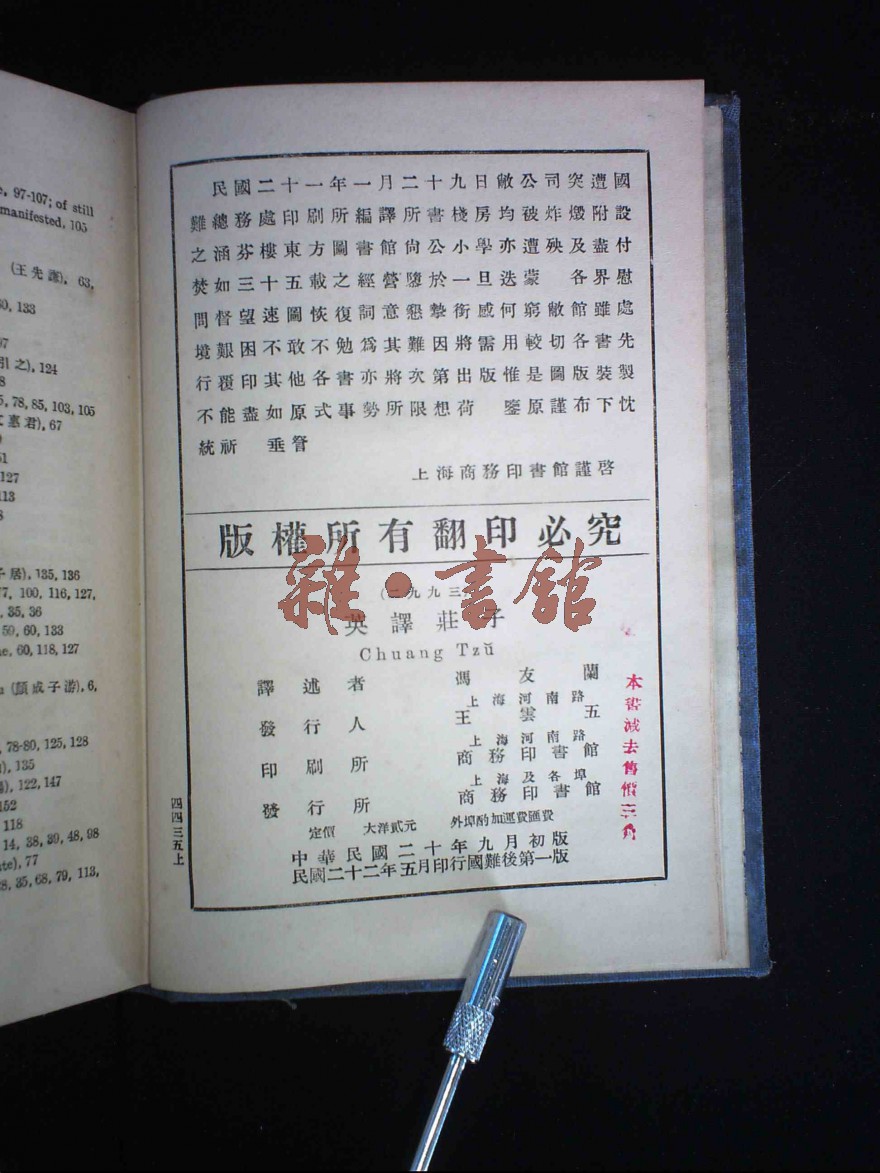 e, 97-107; of still
manifested, 105
(王先謙), 63,
60, 133
97
引之), 124
8
5, 78, 85, 103, 105
文惠君), 67
9
51
127
113
8
子居), 135, 136
77, 100, 116, 127,
, 35, 36
59, 60, 133
ne, 60, 118, 127
u (顏成子游), 6,
, 78-80, 125, 128
), 135
), 122, 147
152
118
14, 38, 39, 48, 98
ate), 77
28, 35, 68, 79, 113,
民國二十一年一月二十九日敝公司突遭國
難總務處印刷所編譯所書棧房均被炸燬附設
之涵芬樓東方圖書館尙公小學亦遭殃及盡付
焚如三十五載之經營隳於一旦迭蒙 各界慰
問督望速圖恢復詞意懇摯銜感何窮敝館雖處
境艱困不敢不勉爲其難因將需用較切各書先
行覆印其他各書亦將次第出版惟是圖版裝製
不能盡如原式事勢所限想荷 鑒原謹布下忱
統祈 垂詧
上海商務印書館謹啓
版權所有翻印必究
雜·書館
(二九九三)
英譯莊子
Chuang Tzŭ
譯述者 馮友蘭
上海河南路
發行人 王雲五
上海河南路
印刷所 商務印書館
上海及各埠
發行所 商務印書館
定價 大洋貳元 外埠酌加運費匯費
中華民國二十年九月初版
民國二十二年五月印行國難後第一版
四四三五上
本書減去售價三角